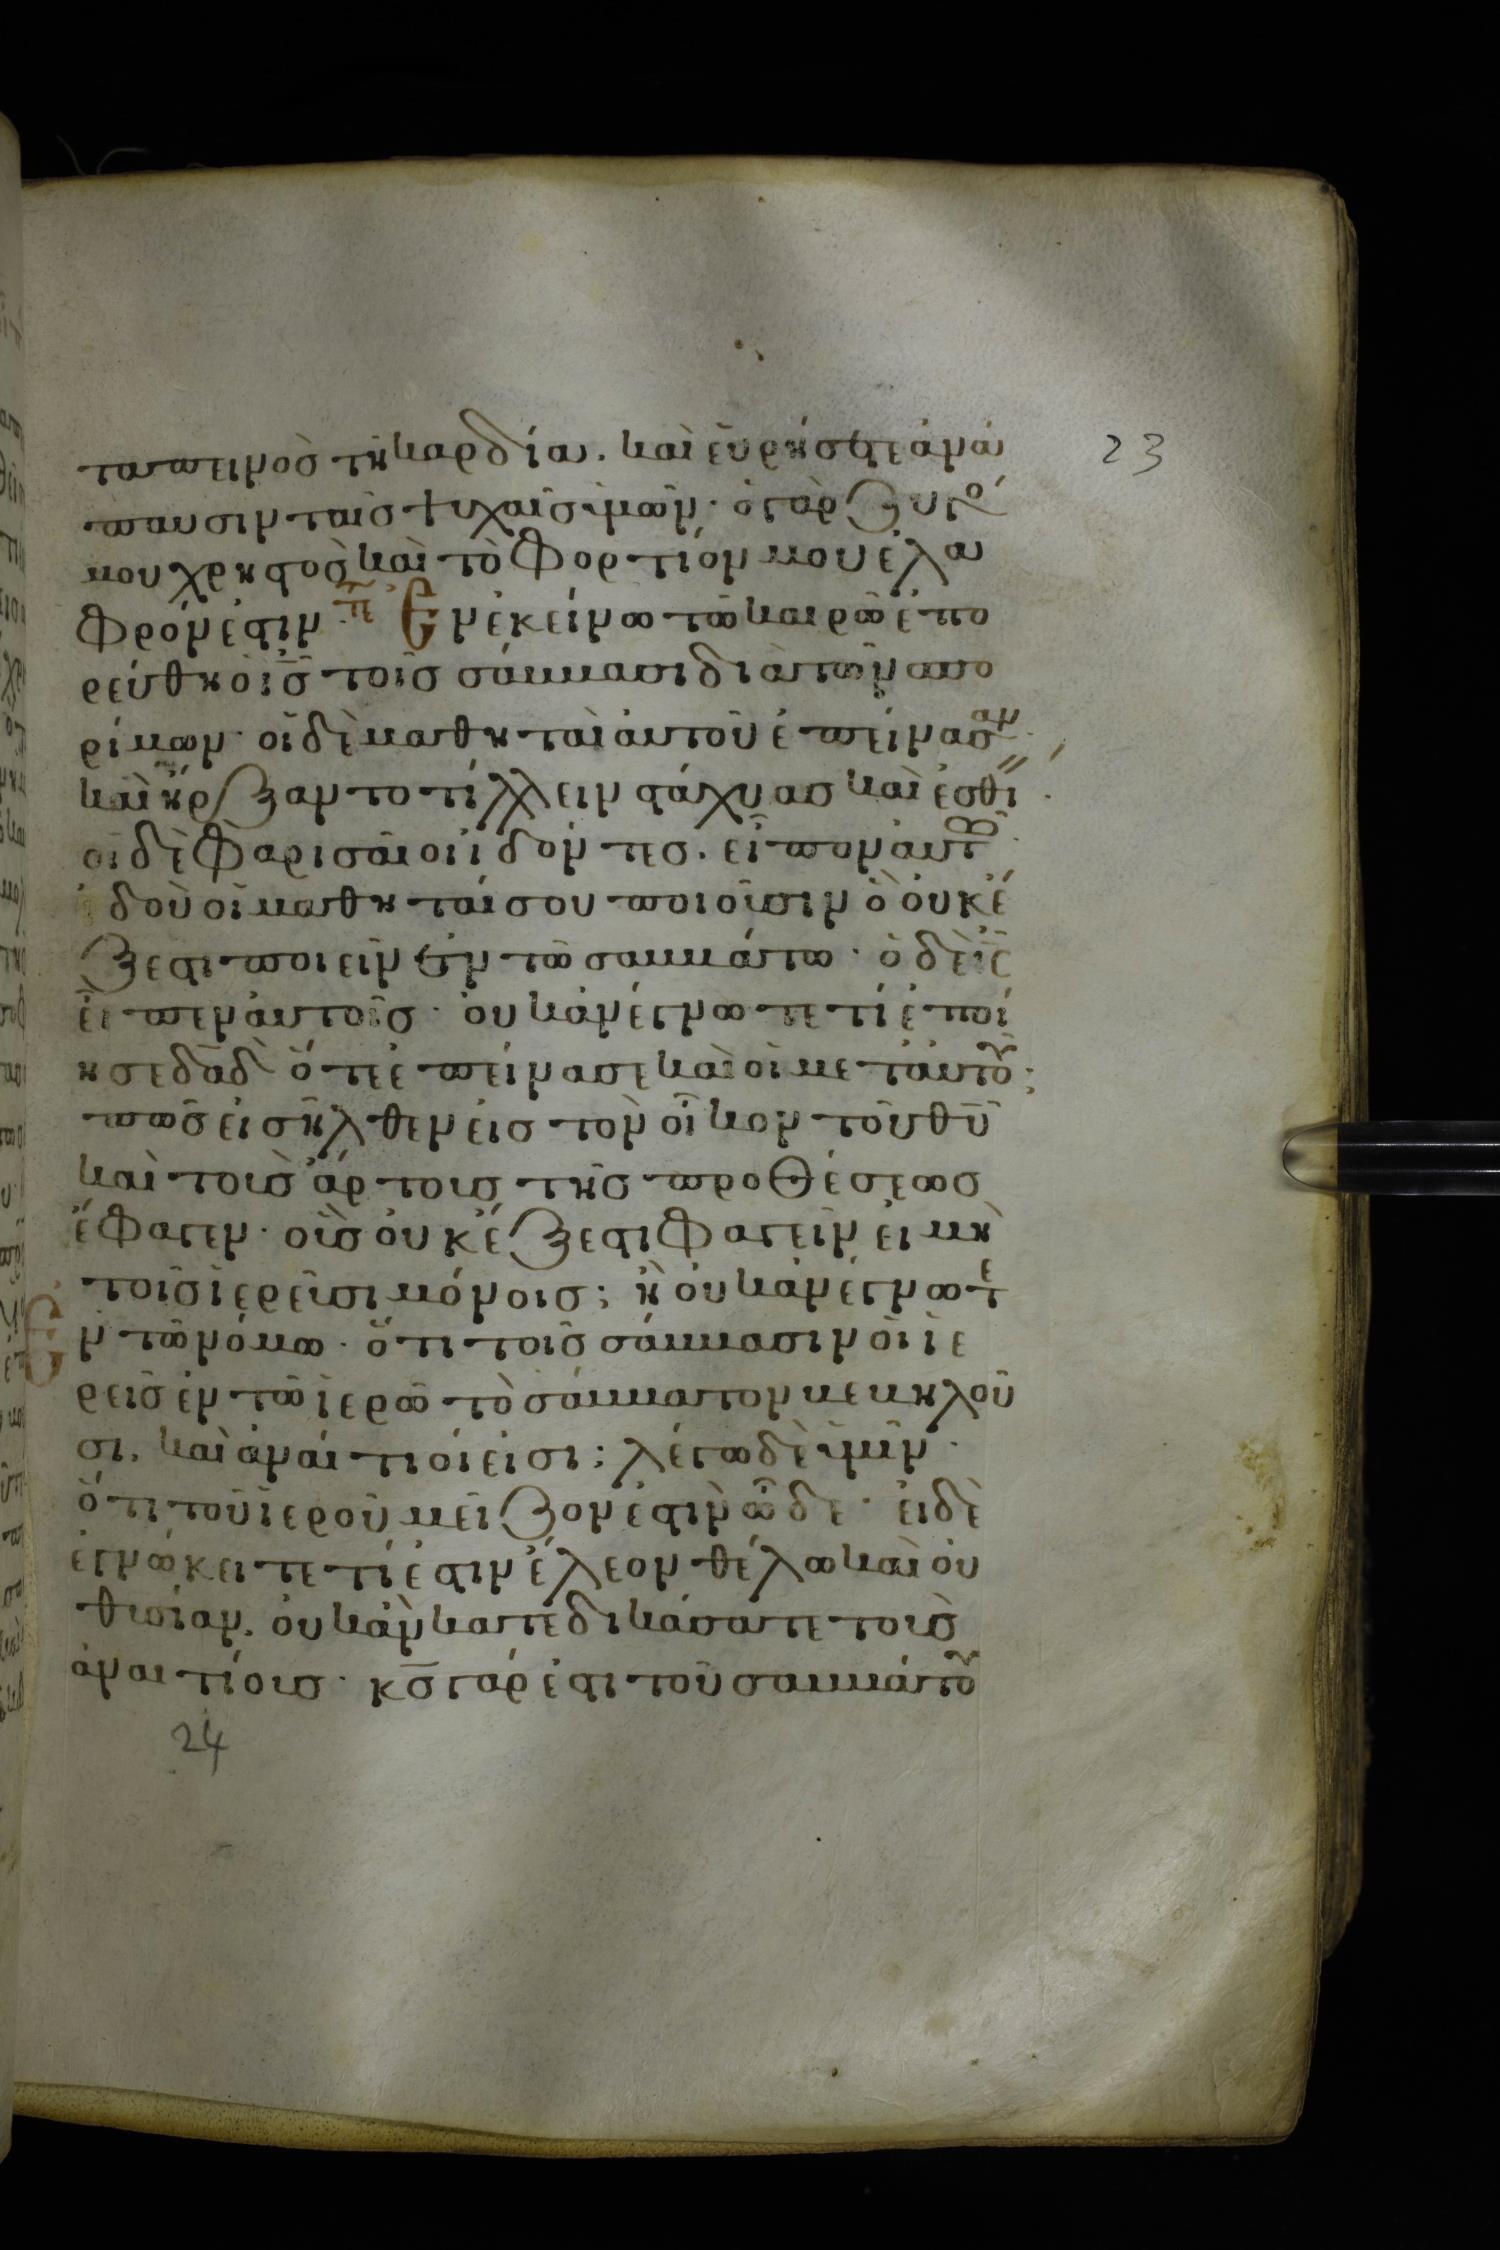 23
ταπεινὸς τῆ καρδία. καὶ εὑρήσετε ἀνά
παυσιν ταῖς ψυχαῖς ὑμῶν· ὁ γὰρ ζυγό
μου χρηστὸς καὶ τὸ φορτίον μου ἐλα
φρόν ἐστιν· Ἐν ἐκείνω τῶ καιρῶ ἐπο
ρεύθη ὁ ις τοῖς σάββασι διὰ τῶν σπο
ρίμων· οἱ δὲ μαθηταὶ αὐτοῦ ἐπείνασαν·
καὶ ἤρξαντο τίλλειν στάχυας καὶ ἐσθί·
οἱ δὲ φαρισαῖοι ἰδόντες· εἶπον αὐτῶ·
ἰδοὺ οἱ μαθηταί σου ποιοῦσιν ὃ οὐκ ἔ
ξεστι ποιεῖν ἐν τῶ σαββάτω· ὁ δὲ ις
εἶπεν αὐτοῖς· οὐκ ἀνέγνωτε τί ἐποί
ησε δαδ ὅτε ἐπείνασε καὶ οἱ μετ αὐτοῦ;
πῶς εἰσῆλθεν εἰς τὸν οἶκον τοῦ θυ
καὶ τοὺς ἄρτους τῆς προθέσεως
ἔφαγεν· οἷς οὐκ ἔξεστι φαγεῖν εἰ μὴ
τοῖς ἱερεῦσι μόνοις; ἢ οὐκ ἀνέγνωτε
ἐν τῶ νόμω· ὅτι τοῖς σάββασιν οἱ ἱε
ρεῖς ἐν τῶ ἱερῶ τὸ σάββατον βεβηλοῦ
σι, καὶ ἀναίτιοί εἰσι; λέγω δὲ ὑμῖν·
ὅτι τοῦ ἱεροῦ μεῖζον ἐστιν ὧδε· εἰ δὲ
ἐγνώκειτε τί ἐστιν ἔλεον θέλω καὶ οὐ
θυσίαν, οὐκ ἂν κατεδικάσατε τοὺς
ἀναιτίους· κς γάρ ἐστι τοῦ σαββάτου
24